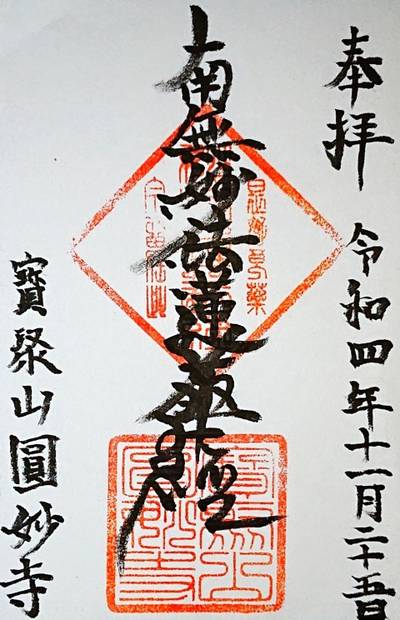 奉拝
令和四年十一月二十五日
南無妙法蓮華経
寳聚山圓妙寺